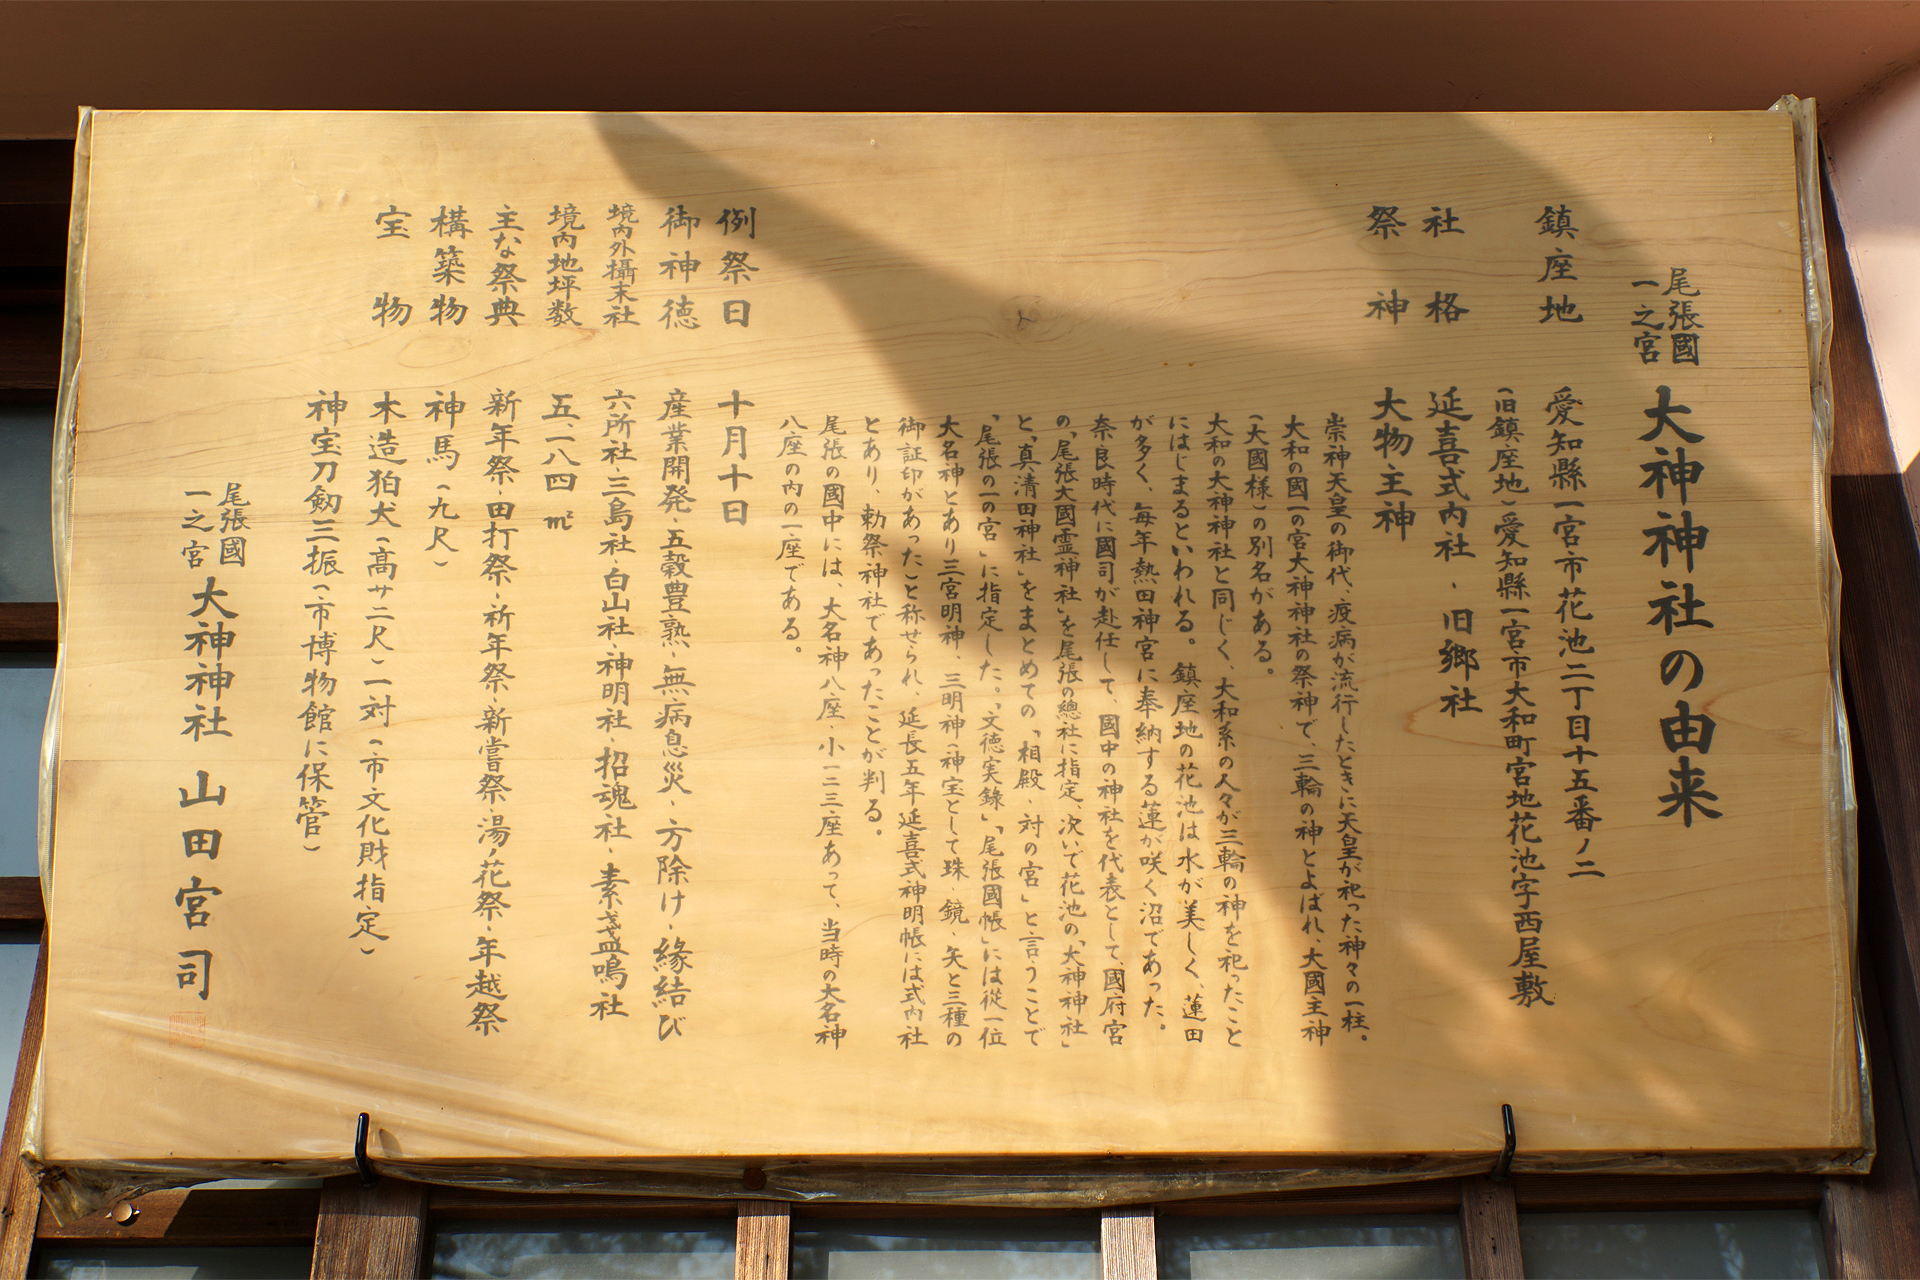 尾張國
一之宮
大神神社の由来
鎮座地
愛知縣一宮市花池二丁目十五番ノ二
(旧鎮座地)愛知縣一宮市大和町宮地花池字西屋敷
社格
延喜式内社・旧郷社
祭神
大物主神
崇神天皇の御代、疫病が流行したときに天皇が祀った神々の一柱。
大和の國一の宮大神神社の祭神で、三輪の神とよばれ、大國主神
(大國様)の別名がある。
大和の大神神社と同じく、大和系の人々が三輪の神を祀ったこと
にはじまるといわれる。鎮座地の花池は水が美しく、蓮田
が多く、毎年熱田神宮に奉納する蓮が咲く沼であった。
奈良時代に國司が赴任して、國中の神社を代表として、國府宮
の「尾張大國霊神社」を尾張の總社に指定、次いで花池の、「大神神社」
と「真清田神社」をまとめての「相殿・対の宮」と言うことで
「尾張の一の宮」に指定した。「文徳実錄」「尾張國帳」には従一位
大名神とあり三宮明神、三明神(神宝として珠・鏡・矢と三種の
御証印があった)と称せられ、延長五年延喜式神明帳には式内社
とあり、勅祭神社であったことが判る。
尾張の國中には、大名神八座・小一二三座あって、当時の大名神
八座の内の一座である。
例祭日
十月十日
御神徳
産業開発・五穀豊熟・無病息災・方除け・縁結び
境内外攝末社
六所社・三島社・白山社・神明社・招魂社・素盞嗚社
境内地坪数
五、一八四㎡
主な祭典
新年祭・田打祭・祈年祭・新嘗祭・湯ノ花祭・年越祭
構築物
神馬(九尺)
宝物
木造狛犬(高サ二尺)一対(市文化財指定)
神宝刀劔三振(市博物館に保管)
尾張國
一之宮
大神神社 山田宮司